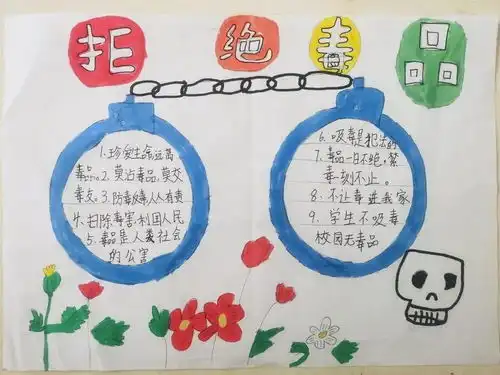 拒绝毒品
1.珍爱生命远离
毒品。2.莫沾毒品,莫交
毒友。3.防毒反毒人人有责
4.扫除毒害.利国人民
5.毒品是人类社会
的公害
6.吸毒是犯法的
7.毒品一日不绝,禁
毒一刻不止。
8.不让毒进我家
9.学生不吸毒
校园无毒品